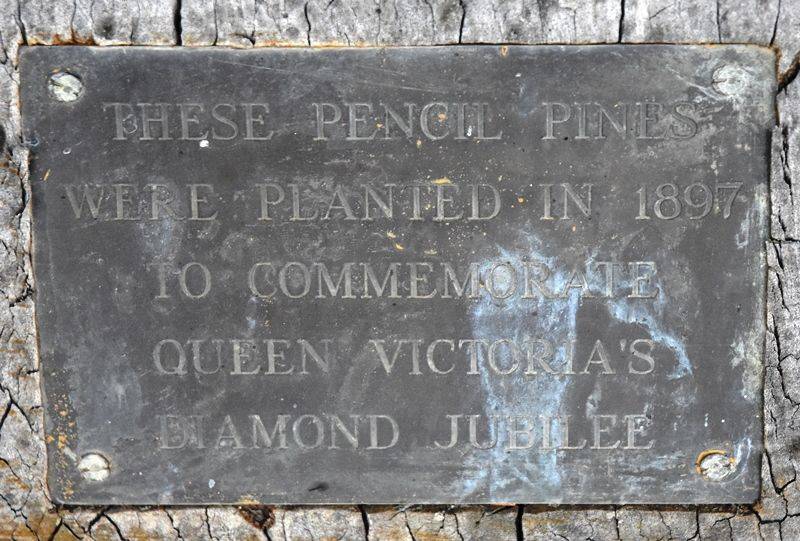 THESE PENCIL PINES
WERE PLANTED IN 1897
TO COMMEMORATE
QUEEN VICTORIA'S
DIAMOND JUBILEE